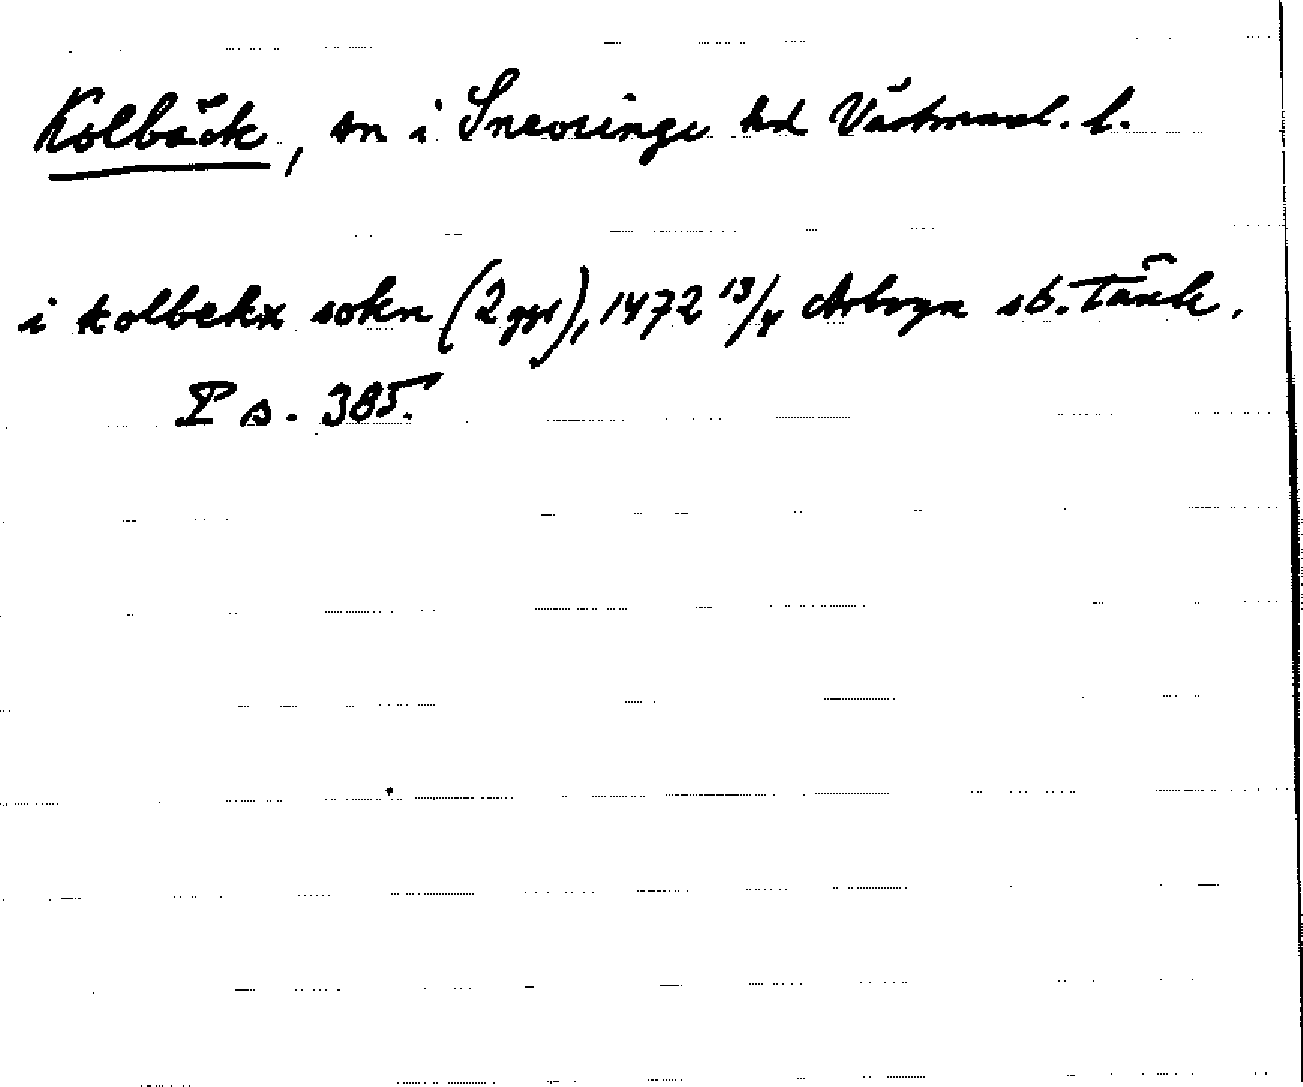 Kolbäck, sn i Snevringe hd Västmanl. l.
i kolbekx sokn (2 ggr), 1472 13/4 Arboga sb. Tänk.
I s. 385.